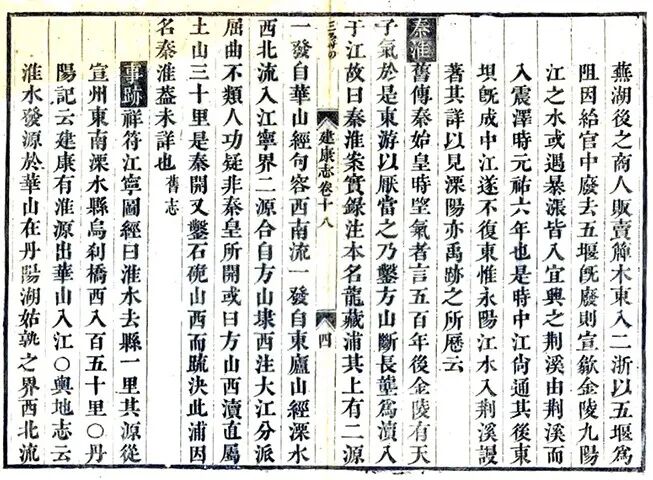 蕪湖後之商人販賣簰木東入二浙以五堰爲
阻因給官中廢去五堰旣廢則宣歙金陵九陽
江之水或遇暴漲皆入宜興之荆溪由荆溪而
入震澤時元祐六年也是時中江尙通其後東
垻旣成中江遂不復東惟永陽江水入荆溪謾
著其詳以見溧陽亦禹跡之所歷云
秦淮舊傳秦始皇時望氣者言五百年後金陵有天
子氣於是東游以厭當之乃鑿方山斷長壟爲瀆入
于江故曰秦淮案實錄注本名龍藏浦其上有二源
建康志卷十八
四
一發自華山經句容西南流一發自東廬山經溧水
西北流入江寧界二源合自方山埭西注大江分派
屈曲不類人功疑非秦皇所開或曰方山西瀆直屬
土山三十里是秦開又鑿石硊山西而疏決此浦因
名秦淮葢未詳也舊志
事跡祥符江寧圖經曰淮水去縣一里其源從
宣州東南溧水縣烏刹橋西入百五十里〇丹
陽記云建康有淮源出華山入江〇輿地志云
淮水發源於華山在丹陽湖姑孰之界西北流